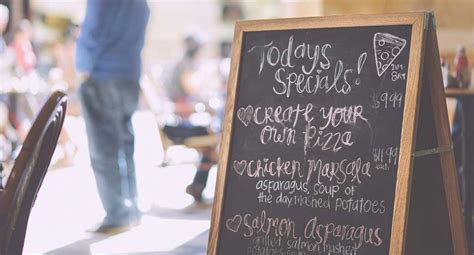 Todays
Specials!
$9.99
Create your
own Pizza
Chicken Marsala
$11.99
asparagus, soup of
the day, mashed potatoes
Salmon Asparagus
grilled salmon, mashed
potatoes